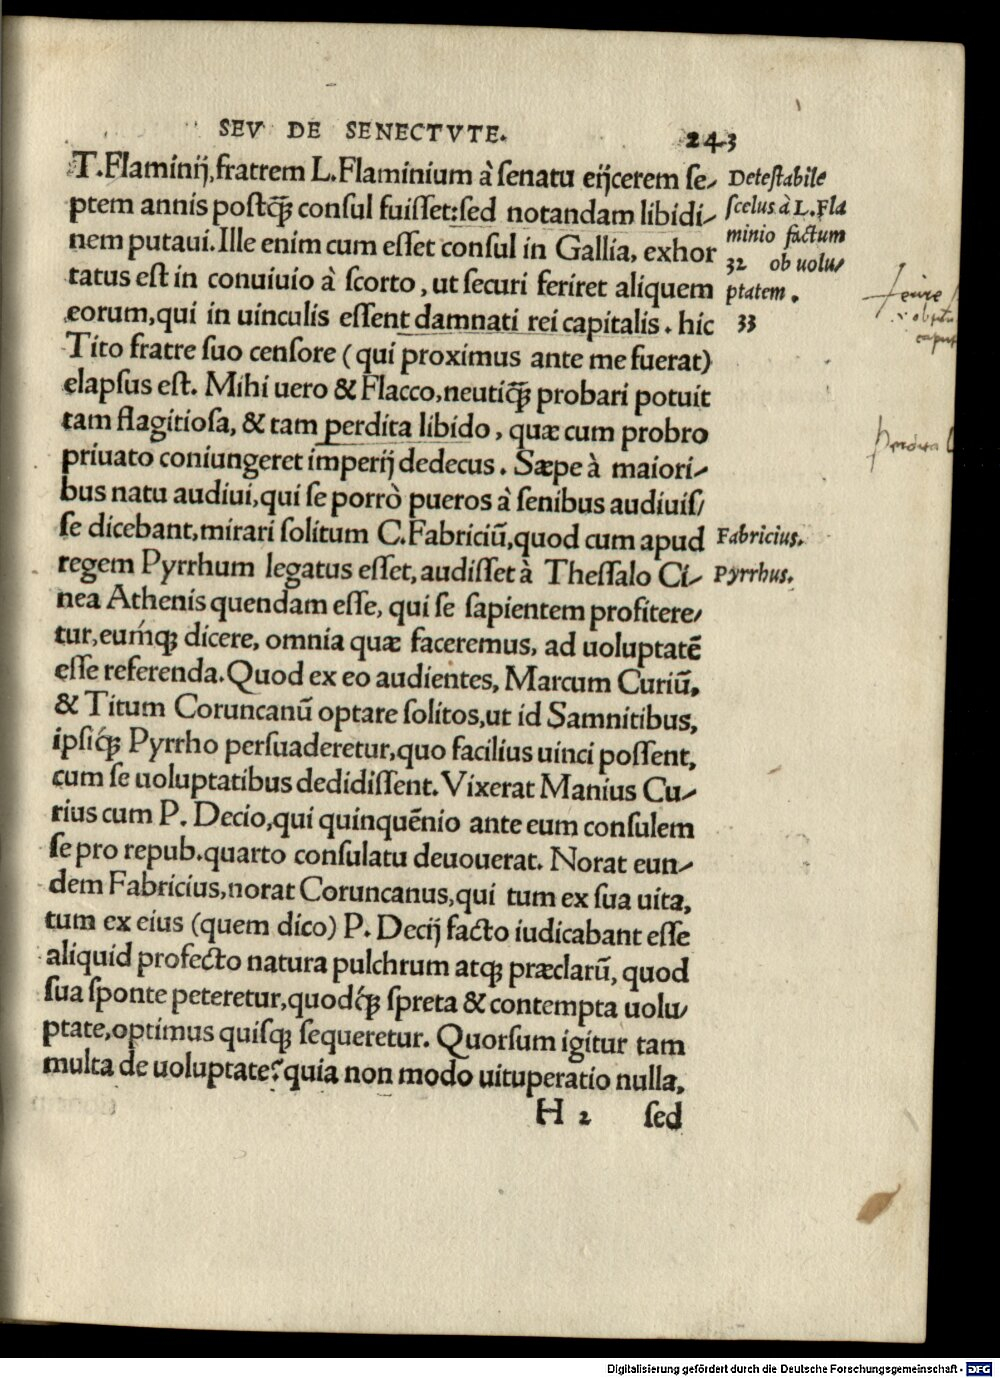 SEV DE SENECTVTE. 243
T.Flaminij,fratrem L.Flaminium à senatu eijcerem se-
ptem annis postq̃ consul fuisset:sed notandam libidi-
nem putaui.Ille enim cum esset consul in Gallia, exhor
tatus est in conuiuio à scorto, ut securi feriret aliquem
eorum,qui in uinculis essent damnati rei capitalis. hic
Tito fratre suo censore (qui proximus ante me fuerat)
elapsus est. Mihi uero & Flacco,neutiq̃ probari potuit
tam flagitiosa, & tam perdita libido, quæ cum probro
priuato coniungeret imperij dedecus. Sæpe à maiori-
bus natu audiui,qui se porrò pueros à senibus audiuis-
se dicebant,mirari solitum C.Fabriciũ,quod cum apud
regem Pyrrhum legatus esset,audisset à Thessalo Ci-
nea Athenis quendam esse, qui se sapientem profitere-
tur,eumq; dicere, omnia quæ faceremus, ad uoluptatẽ
esse referenda.Quod ex eo audientes, Marcum Curiũ,
& Titum Coruncanũ optare solitos,ut id Samnitibus,
ipsiq́; Pyrrho persuaderetur,quo facilius uinci possent,
cum se uoluptatibus dedidissent. Vixerat Manius Cu-
rius cum P. Decio,qui quinquẽnio ante eum consulem
se pro repub.quarto consulatu deuouerat. Norat eun-
dem Fabricius,norat Coruncanus,qui tum ex sua uita,
tum ex eius (quem dico) P. Decij facto iudicabant esse
aliquid profecto natura pulchrum atq; præclarũ, quod
sua sponte peteretur,quodq́; spreta & contempta uolu-
ptate,optimus quisq; sequeretur. Quorsum igitur tam
multa de uoluptate? quia non modo uituperatio nulla,
H 2 sed
Detestabile
scelus à L.Fla
minio factum
32 ob uolu-
ptatem.
33
Fabricius.
Pyrrhus.
Digitalisierung gefördert durch die Deutsche Forschungsgemeinschaft - DFG